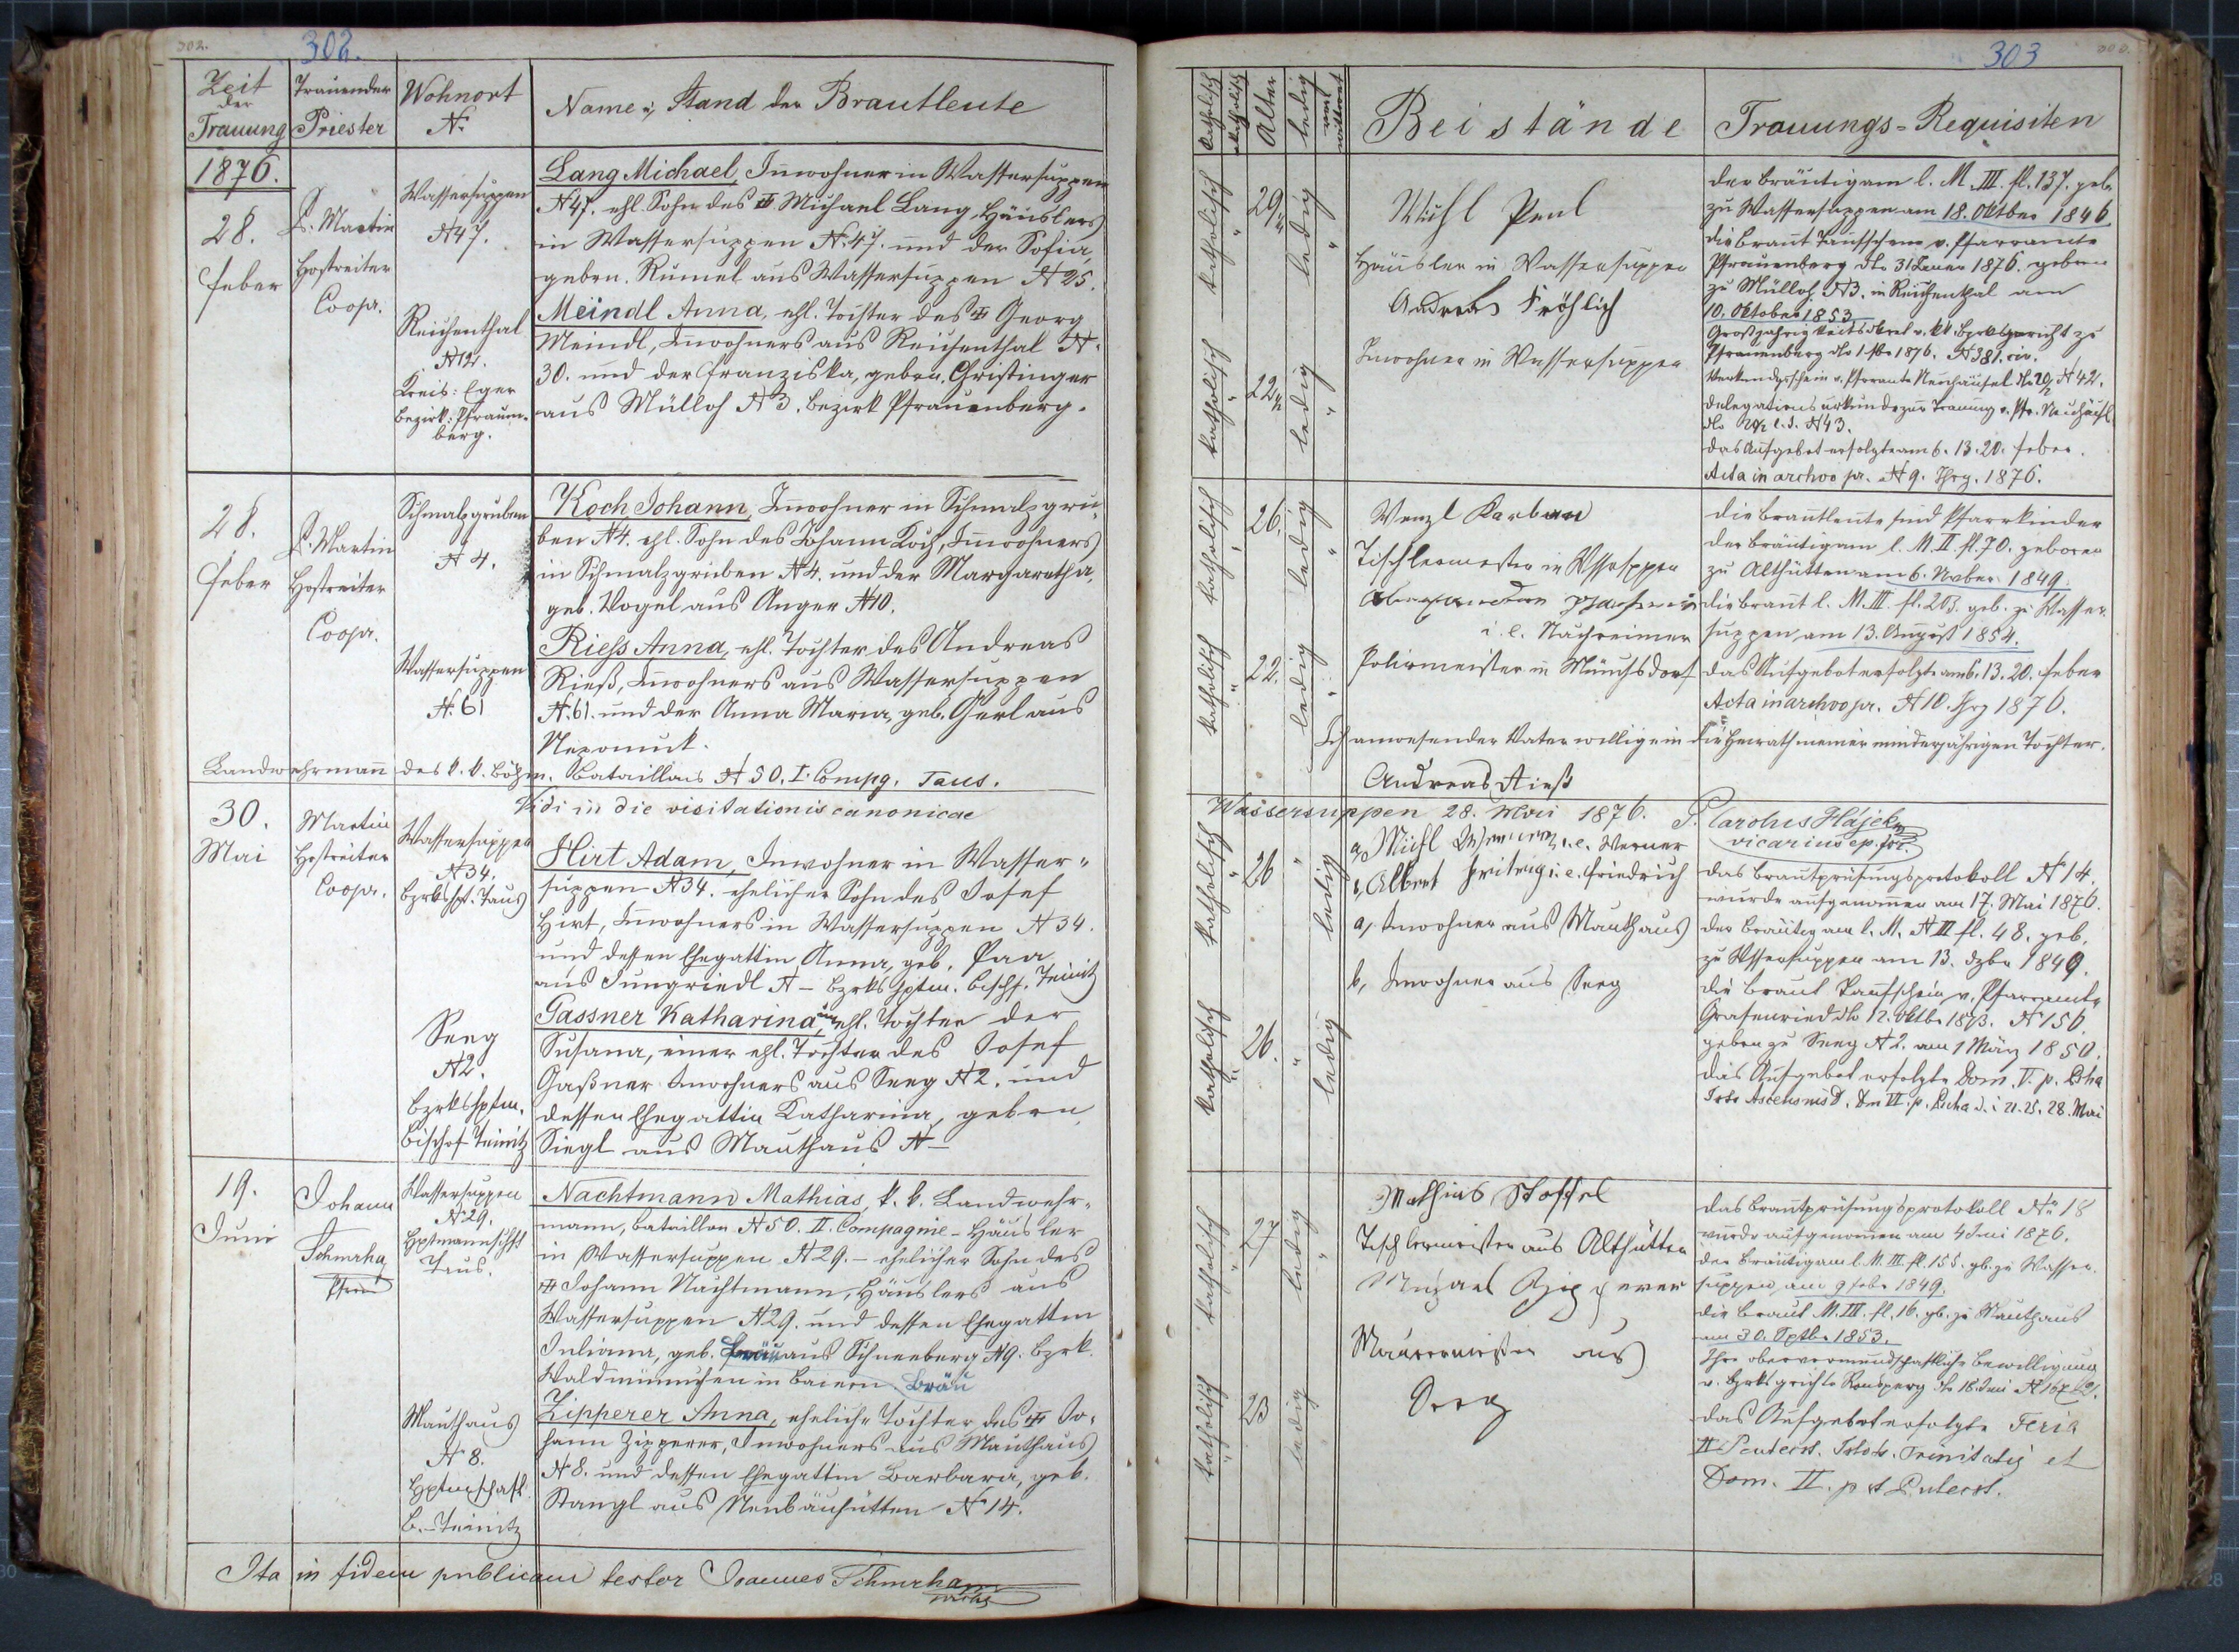 302.
302.
Zeit
der
Trauung
Trauender
Priester
Wohnort
N.
Name u. Stand der Brautleute
1876.
28.
Feber
P. Martin
Hostreiter
Coopr.
Wassersuppen
N 47.
Reichenthal
N 12.
Kreis: Eger
Bezirk: Pfraum-
berg.
Lang Michael, Inwohner in Wassersuppen
N 47. ehl. Sohn des Michael Lang, Häuslers
in Wassersuppen N. 47. und der Sofia,
gebrn. Rumel aus Wassersuppen N 25.
Meindl Anna, ehl. Tochter des Georg
Meindl, Inwohners aus Reichenthal N.
30. und der Franziska, gebrn. Christinger
aus Mülloh N 3. Bezirk Pfrauenberg.
28.
Feber
P. Martin
Hostreiter
Coopr.
Schmalzgruben
N 4.
Wassersuppen
N. 61
Koch Johann, Inwohner in Schmalzgru-
ben N 4. ehl. Sohn des Johann Koch, Inwohners
in Schmalzgruben N 4. und der Margaretha,
geb. Vogel aus Anger N 10.
Riehs Anna, ehl. Tochter des Andreas
Rieß, Inwohners aus Wassersuppen
N. 61. und der Anna Maria, geb. Gerl aus
Nepomuk.
Landwehrmann des k. k. Böhm. Bataillons N 50. I. Compg. Taus.
Vidi in die visitationis canonicae
30.
Mai
Martin
Hostreiter
Coopr.
Wassersuppen
N 34.
Bzrkshpt. Taus
Seeg
N 2.
Bzrkshptm.
Bischof Teinitz
Hirt Adam, Inwohner in Wasser-
suppen N 34. ehelicher Sohn des Josef
Hirt, Inwohners in Wassersuppen N 34.
und dessen Ehegattin Anna, geb. Paa
aus Jungriedl N – Bzrkshptm. Bischf. Teinitz
Gassner Katharina, unehl. Tochter der
Susana, einer ehl. Tochter des Josef
Gaßner Inwohners aus Seeg N 2. und
dessen Ehegattin Katharina, gebrn.
Siegl aus Mauthaus N –
19.
Juni
Johann
Schmrha
Pfarrer
Wassersuppen
N 29.
Hptmannschft
Taus.
Mauthaus
N 8.
Hptmschaft
B.-Teinitz
Nachtmann Mathias, k. k. Landwehr-
mann, Bataillon N 50. II. Compagnie – Häusler
in Wassersuppen N 29. – ehelicher Sohn des
Johann Nachtmann, Häuslers aus
Wassersuppen N 29. und dessen Ehegattin
Juliana, geb. Bräu aus Schneeberg N 9. Bzrk.
Waldmünchen in Baiern. Bräu
Zipperer Anna, eheliche Tochter des Jo-
hann Zipperer, Inwohners aus Mauthaus
N 8. und dessen Ehegattin Barbara, geb.
Stangl aus Neubäuhütten N 14.
Ita in fidem publicam testor Joannes Schmrha
303
Katholisch
Alter
ledig
Beistände
Trauungs-Requisiten
katholisch
29
ledig
katholisch
22
ledig
Mühl Paul
Häusler in Wassersuppen
Andreas Fröhlich
Inwohner in Wassersuppen
der Bräutigam l. M. III. fl. 137. geb.
zu Wassersuppen am 18. Oktber 1846
die Braut Taufschein v. Pfarramte
Pfrauenberg dto 31 Jäner 1876. gebrn
zu Mülloh N 3. in Reichenthal am
10. Oktober 1853
Großjährigkeitsdkret v. kk. Bzrksgericht zu
Pfrauenberg dto 1. Fbr 1876. N 381. civ.
Verkündgsschein v. Pfarramte Neuhäusel N 42.
Delegationsurkunde zur Trauung v. Pfr. Neuhäusl
N 43.
das Aufgebot erfolgte am 6. 13. 20. Feber.
Acta in archivo pr. N 9. Jhrg. 1876.
katholisch
26.
ledig
katholisch
22.
ledig
Wenzl Karban
Tischlermeister in Wssrsppen
i. e. Nachreiner
Polirmeister in Münchsdorf
die Brautleute sind Pfarrkinder
der Bräutigam l. M. II. fl. 70. geboren
zu Althütten am 6. Novber 1849.
die Braut l. M. III. fl. 203. geb. zu Wasser-
suppen am 13. August 1854.
das Aufgebot erfolgte am 6. 13. 20. Feber
Acta in archivo pr. N 10. Jhrg 1876.
Ich anwesender Vater willige in die Heirath meiner minderjährigen Tochter.
Andreas Rieß
Wassersuppen 28. Mai 1876. P. Carolus Hájek
vicarius ep. for.
katholisch
26
ledig
katholisch
26.
ledig
a, Mühl i. e. Werner
b, Albert i. e. Friedrich
a, Inwohner aus Mauthaus
b, Inwohner aus Seeg
das Brautprüfungsprotokoll N 14.
wurde aufgenomen am 17. Mai 1876.
der Bräutigam l. M. N III fl. 48. geb.
zu Wssersuppen am 13. Dzbr 1849.
die Braut Taufschein v. Pfarramte
Grafenried dto 12. Oktbr 1873. N 150.
gebrn zu Seeg N 2. am 1 März 1850.
das Aufgebot erfolgte Dom. V. p. Pscha
Festo Ascensnis D. Dm VI. p. Pascha d. i 21. 25. 28. Mai
katholisch
27
ledig
katholisch
23
ledig
Mathias Stoffel
Tischlermeister aus Althütten
Michael Zipperer
Maurermeister aus
Seeg
das Brautprüfungsprotokoll No 18
wurde aufgenomen am 4 Juni 1876.
der Bräutigam l. M. III. fl. 155. gb. zu Wasser-
suppen am 9 Febr 1849.
die Braut M. III. fl. 16. gb. zu Mauthaus
am 30. Sptbr 1853.
Ihre obervormundschaftliche Bewilligung
v. Bzrksgrichte Ronsperg dto 18. Juni
das Aufgebot erfolgte Feria
II Pentecst. Festo Ss. Trinitatis et
Dom. II. p st Pentecst.